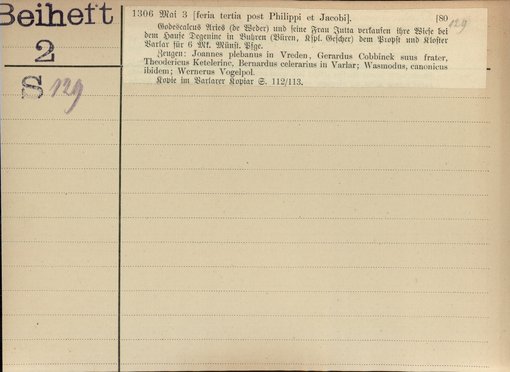 Beiheft
2
S 129
1306 Mai 3 [feria tertia post Philippi et Jacobi]. [80
129
Godescalcus Aries (de Weder) und seine Frau Jutta verkaufen ihre Wiese bei
dem Hause Degenine in Buhren (Büren, Kspl. Gescher) dem Propst und Kloster
Varlar für 6 Mk. Münst. Pfge.
Zeugen: Joannes plebanus in Vreden, Gerardus Cobbinck suus frater,
Theodericus Ketelerinc, Bernardus celerarius in Varlar; Wasmodus, canonicus
ibidem; Wernerus Vogelpol.
Kopie im Varlarer Kopiar S. 112/113.